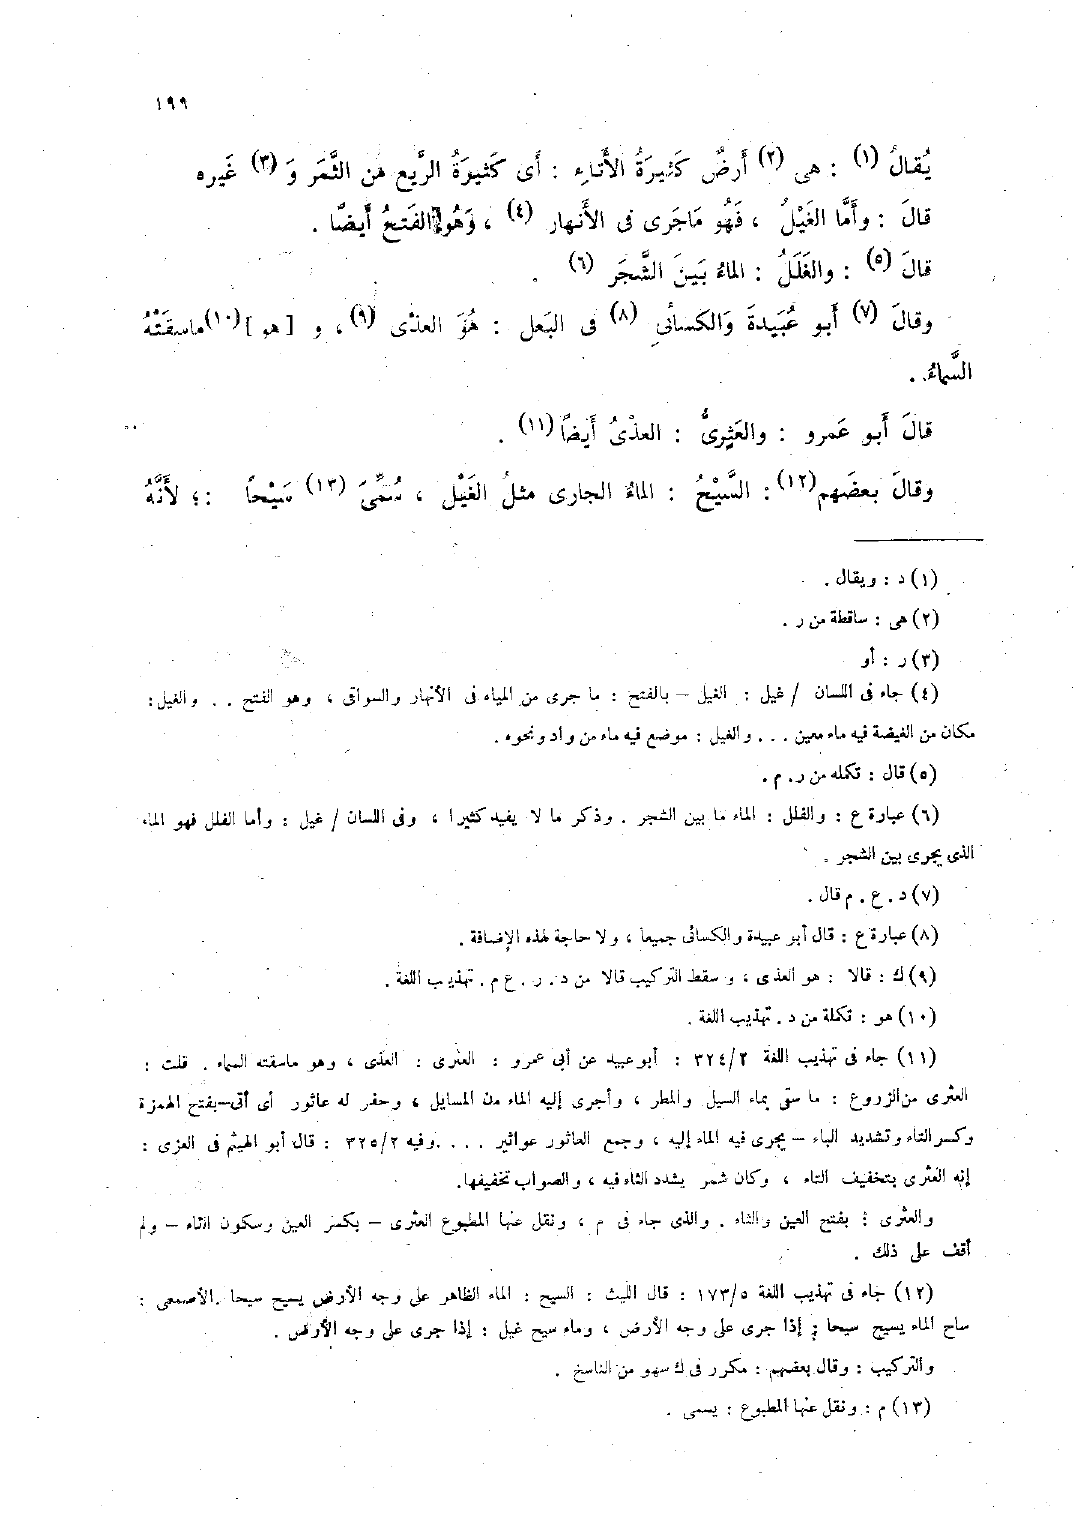 ١٩٩
يُقالُ (١) : هى (٢) أَرضٌ كَثِيرَةُ الأَتاءِ : أَى كَثيرَةُ الرَّيعِ مِن الثَّمَر وَ (٣) غَيره
قالَ : وأَمَّا الغَيْلُ ، فَهُو مَاجَرى فى الأَنهار (٤) ، وَهُو الفَتحُ أَيضًا .
قالَ (٥) : والغَلَلُ : الماءُ بَينَ الشَّجَر (٦) .
وقالَ (٧) أَبو عُبَيدةَ وَالكَسائىِ (٨) فى البَعل : هُوَ العذْى (٩) ، و [ هو ] (١٠) ماسقَتْهُ
السَّماءُ .
قالَ أَبو عَمرو : والعَثِرىُّ : العذْىُ أَيضاً (١١) .
وقالَ بعضَهم (١٢) : السَّيْحُ : الماءُ الجارى مثلُ الغَيْل ، سُمِّىَ (١٣) سَيْحاً : ؛ لأَنَّهُ
(١) د : ويقال .
(٢) هى : ساقطة من ر .
(٣) ر : أو
(٤) جاء فى اللسان / غيل : الغيل – بالفتح : ما جرى من المياه فى الأنهار والسواقى ، وهو الفتح . . والغيل :
مكان من الغيضة فيه ماء معين . . . والغيل : موضع فيه ماء من واد ونحوه .
(٥) قال : تكمله من ر . م .
(٦) عبارة ع : والغلل : الماء ما بين الشجر . وذكر ما لا يفيد كثيرا ، وفى اللسان / غيل : وأما الغلل فهو الماء
الذى يجرى بين الشجر .
(٧) د . ع . م قال .
(٨) عبارة ع : قال أبو عبيدة والكسائى جميعا ، ولا حاجة لهذه الإضافة .
(٩) ك : قالا : هو العذى ، وسقط التركيب قالا من د . ر . ع م . تهذيب اللغة .
(١٠) هو : تكلة من د . تهذيب اللغة .
(١١) جاء فى تهذيب اللغة ٣٢٤/٢ : أبو عبيد عن أبى عمرو : العثرى : العذى ، وهو ماسقته السماء . قلت :
العثرى من الزروع : ما سقى بماء السيل والمطر ، وأجرى إليه الماء من المسايل ، وحفر له عاثور أى أتى–بفتح الهمزة
وكسر التاء وتشديد الياء – يجرى فيه الماء إليه ، وجمع العاثور عواثير . . . . وفيه ٣٢٥/٢ : قال أبو الهيثم فى العزى :
إنه العثرى بتخفيف الثاء ، وكان شمر يشدد الثاء فيه ، والصواب تخفيفها.
والعثرى : بفتح العين والثاء . والذى جاء فى م ، ونقل عنها المطبوع العثرى – بكسر العين وسكون الثاء – ولم
أقف على ذلك .
(١٢) جاء فى تهذيب اللغة ١٧٣/٥ : قال الليث : السيح : الماء الظاهر على وجه الأرض يسيح سيحا .الأصمعى :
ساح الماء يسيح سيحا : إذا جرى على وجه الأرض ، وماء سيح غيل : إذا جرى على وجه الأرض .
والتركيب : وقال بعضهم : مكرر فى ك سهو من الناسخ .
(١٣) م : ونقل عنها المطبوع : يسمى .